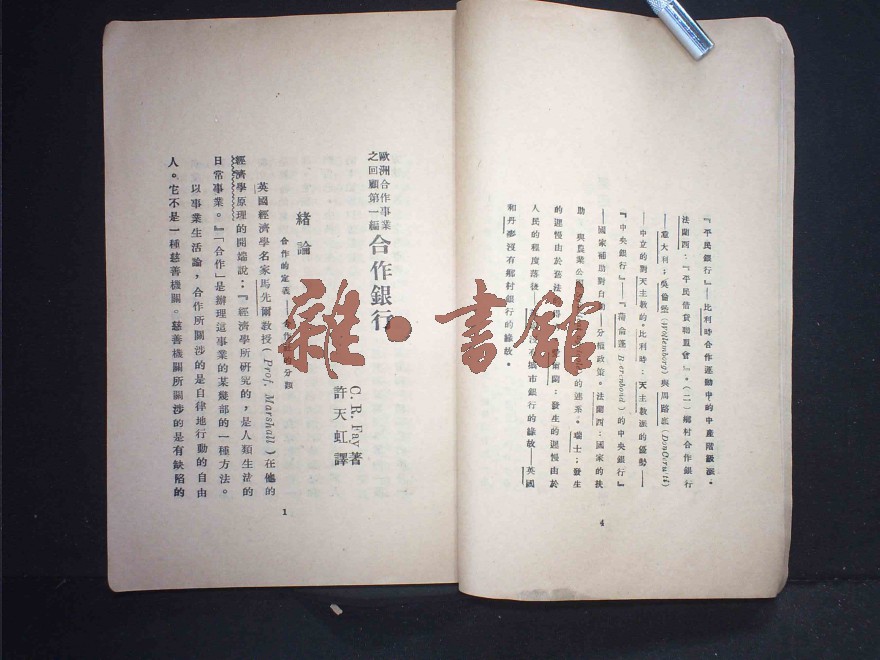 『平民銀行』—比利時合作運動中的中產階級派。
法蘭西：『平民借貸聯盟會』。(二)鄉村合作銀行
—意大利；吳倫堡(Wollemborg)與周
—中立的對天主教的。比利時：天主教派的優勢—
『中央銀行』—『 的中央銀行』
—國家補助對自 分權政策。法蘭西：國家的扶
助 與農業公 的連系。瑞士：發生
的遲慢由於舊法 愛爾蘭：發生的遲慢由於
人民的程度落後 沒有城市銀行的緣故—英國
和丹麥沒有鄉村銀行的緣故。
4
歐洲合作事業
之回顧第一編
合作銀行
C. R. Fay 著
許天虹譯
緒論
合作的定義—合作 的分類
英國經濟學名家馬先爾教授(Prof. Marshall)在他的
經濟學原理的開端說：『經濟學所研究的，是人類生活的
日常事業。』「合作」是辦理這事業的某幾部的一種方法。
以事業生活論，合作所關涉的是自律地行動的自由
人。它不是一種慈善機關。慈善機關所關涉的是有缺陷的
1
雜·書館